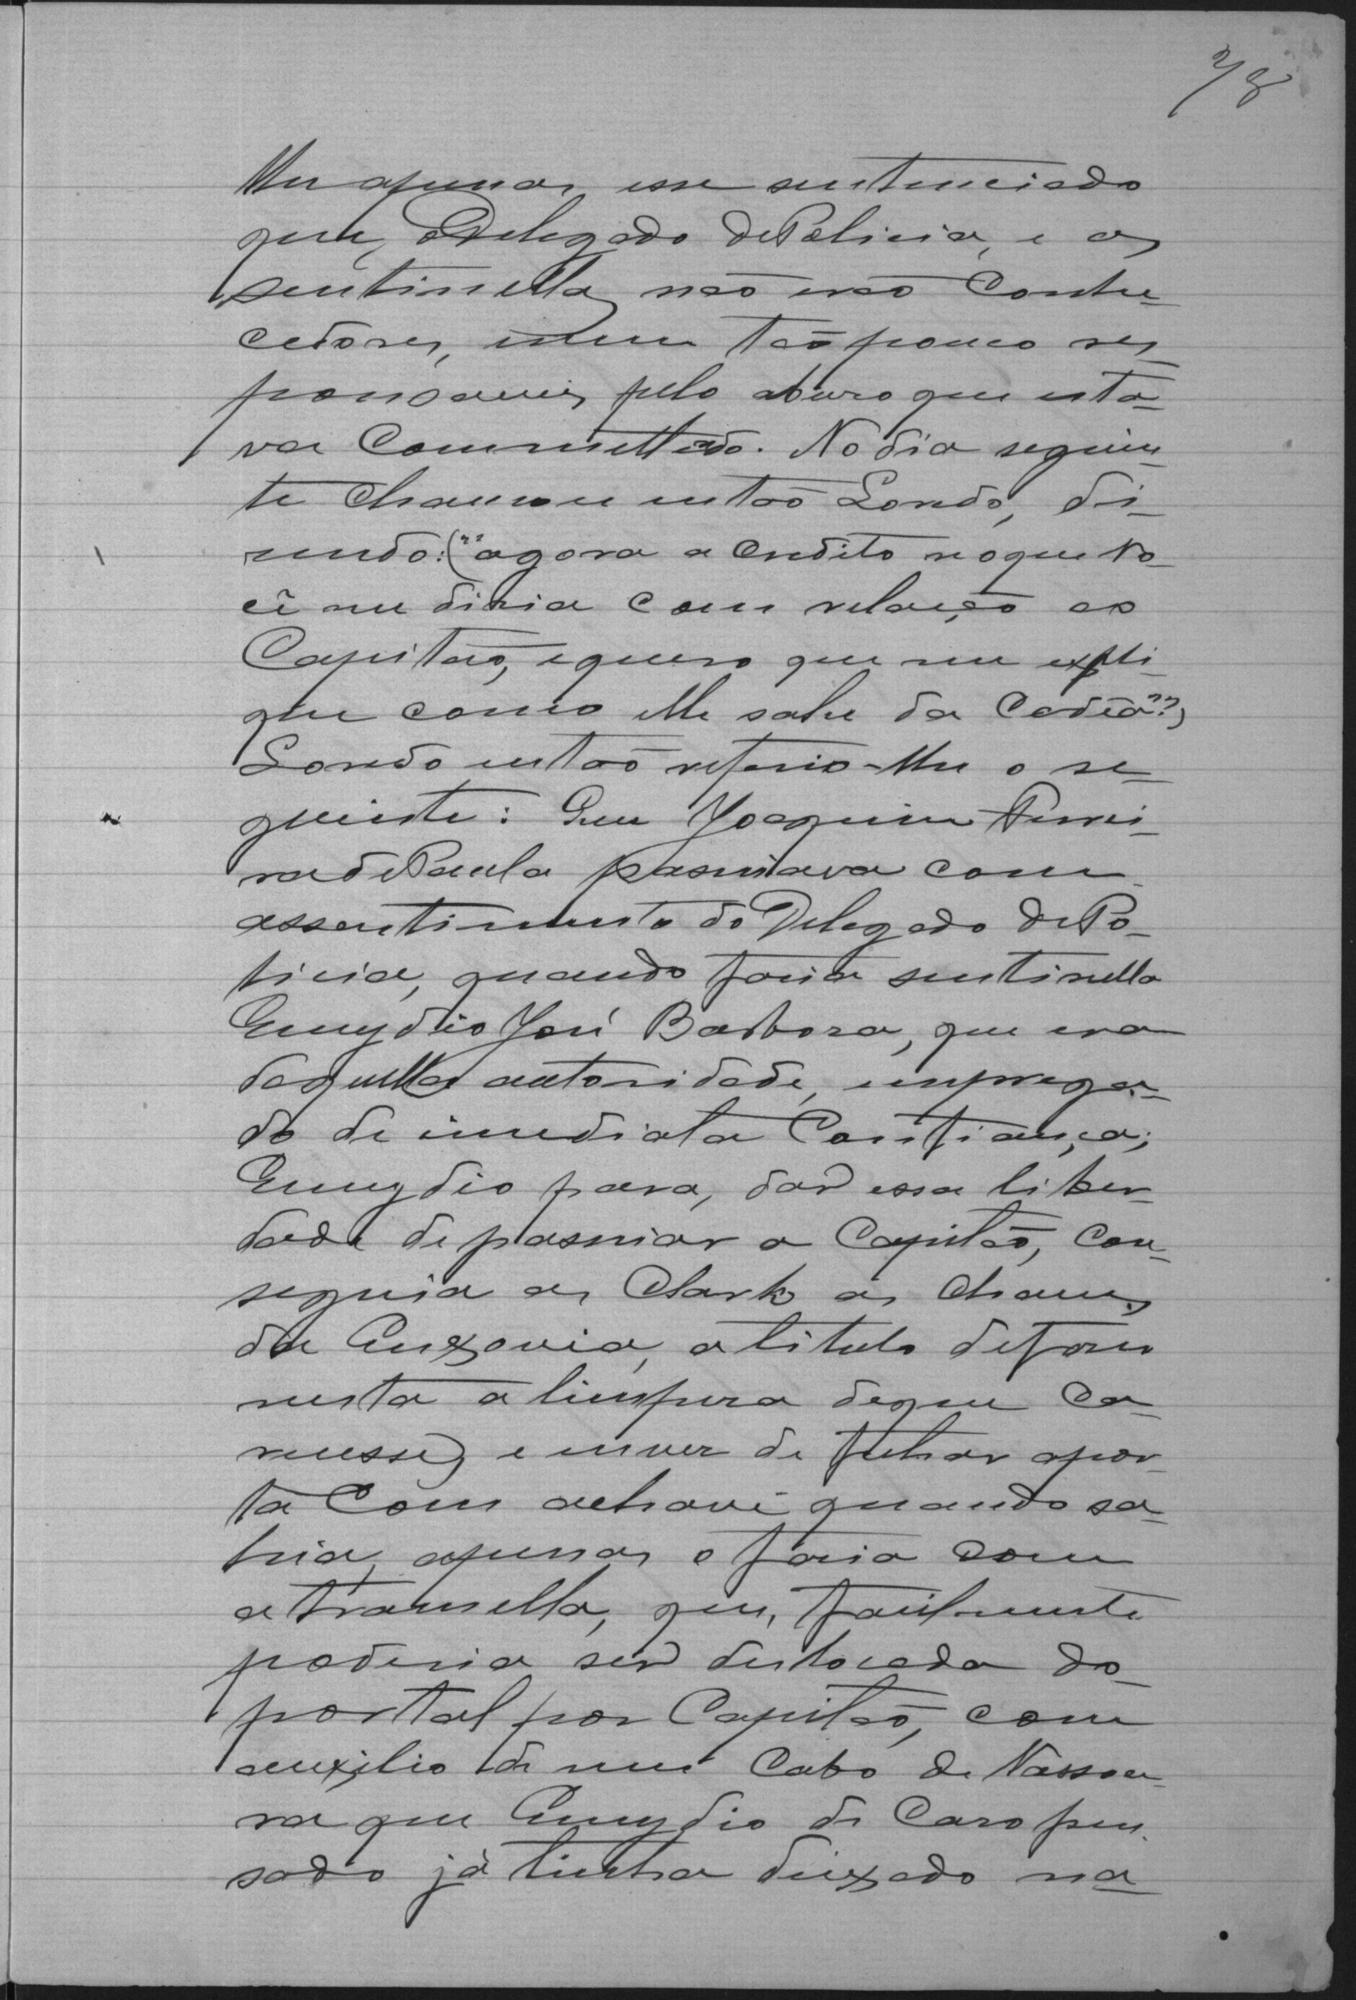 78
lhe apenas esse sentenciado
que, o Delegado de Policia, e as
sentinellas não erão Conhe-
cedores, nem tão pouco res-
ponsaveis pelo abuso que esta-
va Commettendo. No dia seguin-
te chamou então Loredo, di-
sendo: ("agora acredito no que vo-
cê me disia com relação ao
Capitão, e quero que me expli-
que como elle sahe da Cadêa")
Loredo então referio-lhe o se-
guinte: Que Joaquim Ferrei-
ra de Paula passeiava com
assentimento do Delegado de Po-
licia, quando fasia sentinella
Emydio José Barbosa, que era
daquella autoridade, emprega-
do de immediata Confiança;
Emydio para, dar essa liber-
dade de passeiar a Capitão, con-
seguia as Clark as chaves
da Enxovia, a titulo de faser
nesta a limpesa de que Ca-
recesse, e em vez de fechar a por-
ta Com a chave quando sa-
hia, apenas o fasia com
a tramella, que, facilmente
poderia ser deslocada do
portal por Capitão, com
auxilio de um Cabo de Vassou-
ra que Emydio de Caso pen-
sado já tinha deixado na-